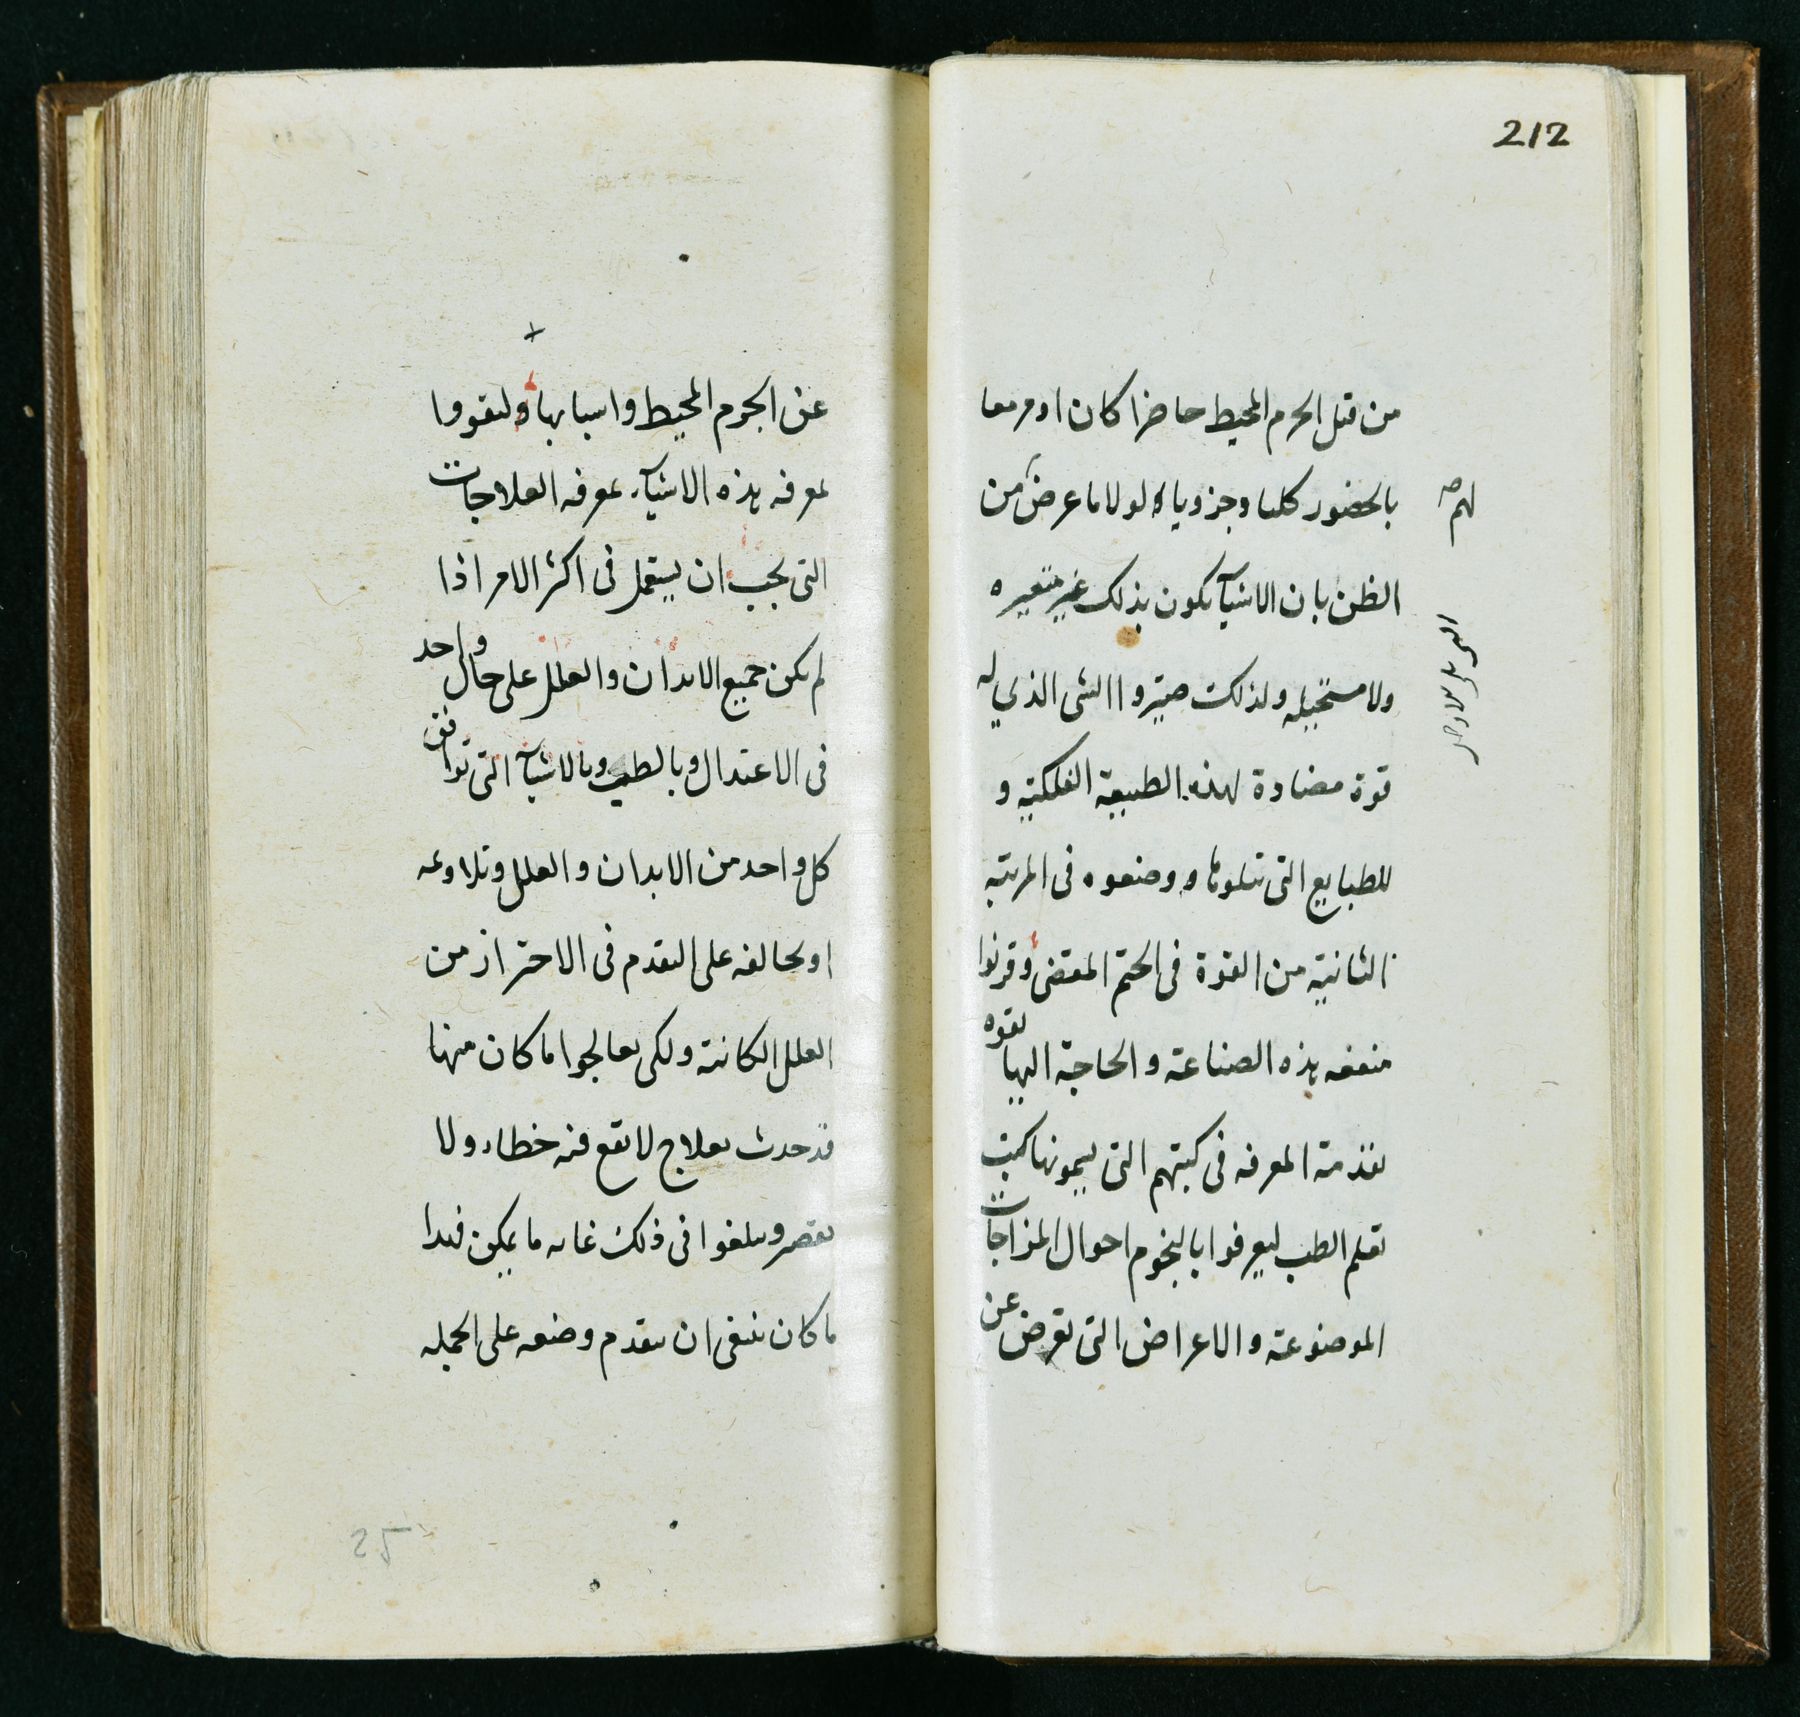 212
من قبل الجرم المحيط حاضرا كان او مزمعا
بالحضور كليا وجزويا لولا ما عرض من
لهم صح
الظن بان الاشيآ يكون بذلك غير متغيره
ولا مستحيله ولذلك صيروا الشى الذي له
قوة مضادة لهذه الطبيعة الفلكية و
للطبايع التى تتلوها ووضعوه فى المرتبة
الثانية من القوة فى الحتم المقضى وقرنوا
منفعه هذه الصناعة والحاجة اليها بقوه
تقدمة المعرفه فى كتبهم التى يسمونها كتب
تعلم الطب ليعرفوا بالنجوم احوال المزاجات
الموضوعة والاعراض التى تعرض عن
عن الجرم المحيط واسبابها وليقووا
بمعرفه هذه الاشيآء بمعرفه العلاجات
التى يجب ان يستعمل فى اكثر الامر اذا
لم يكن جميع الابدان والعلل على حال واحد
فى الاعتدال وبالطب وبالاشيآ التى توافق
كل واحد من الابدان والعلل وتلاومه
او تخالفه على التقدم فى الاحتراز من
العلل الكائنة ولكى يعالجوا ما كان منها
قد حدث بعلاج لا يقع فيه خطاء ولا
تقصير ويبلغوا فى ذلك غايه ما يمكن فهذا
ما كان ينبغى ان يقدم وضعه على الجمله